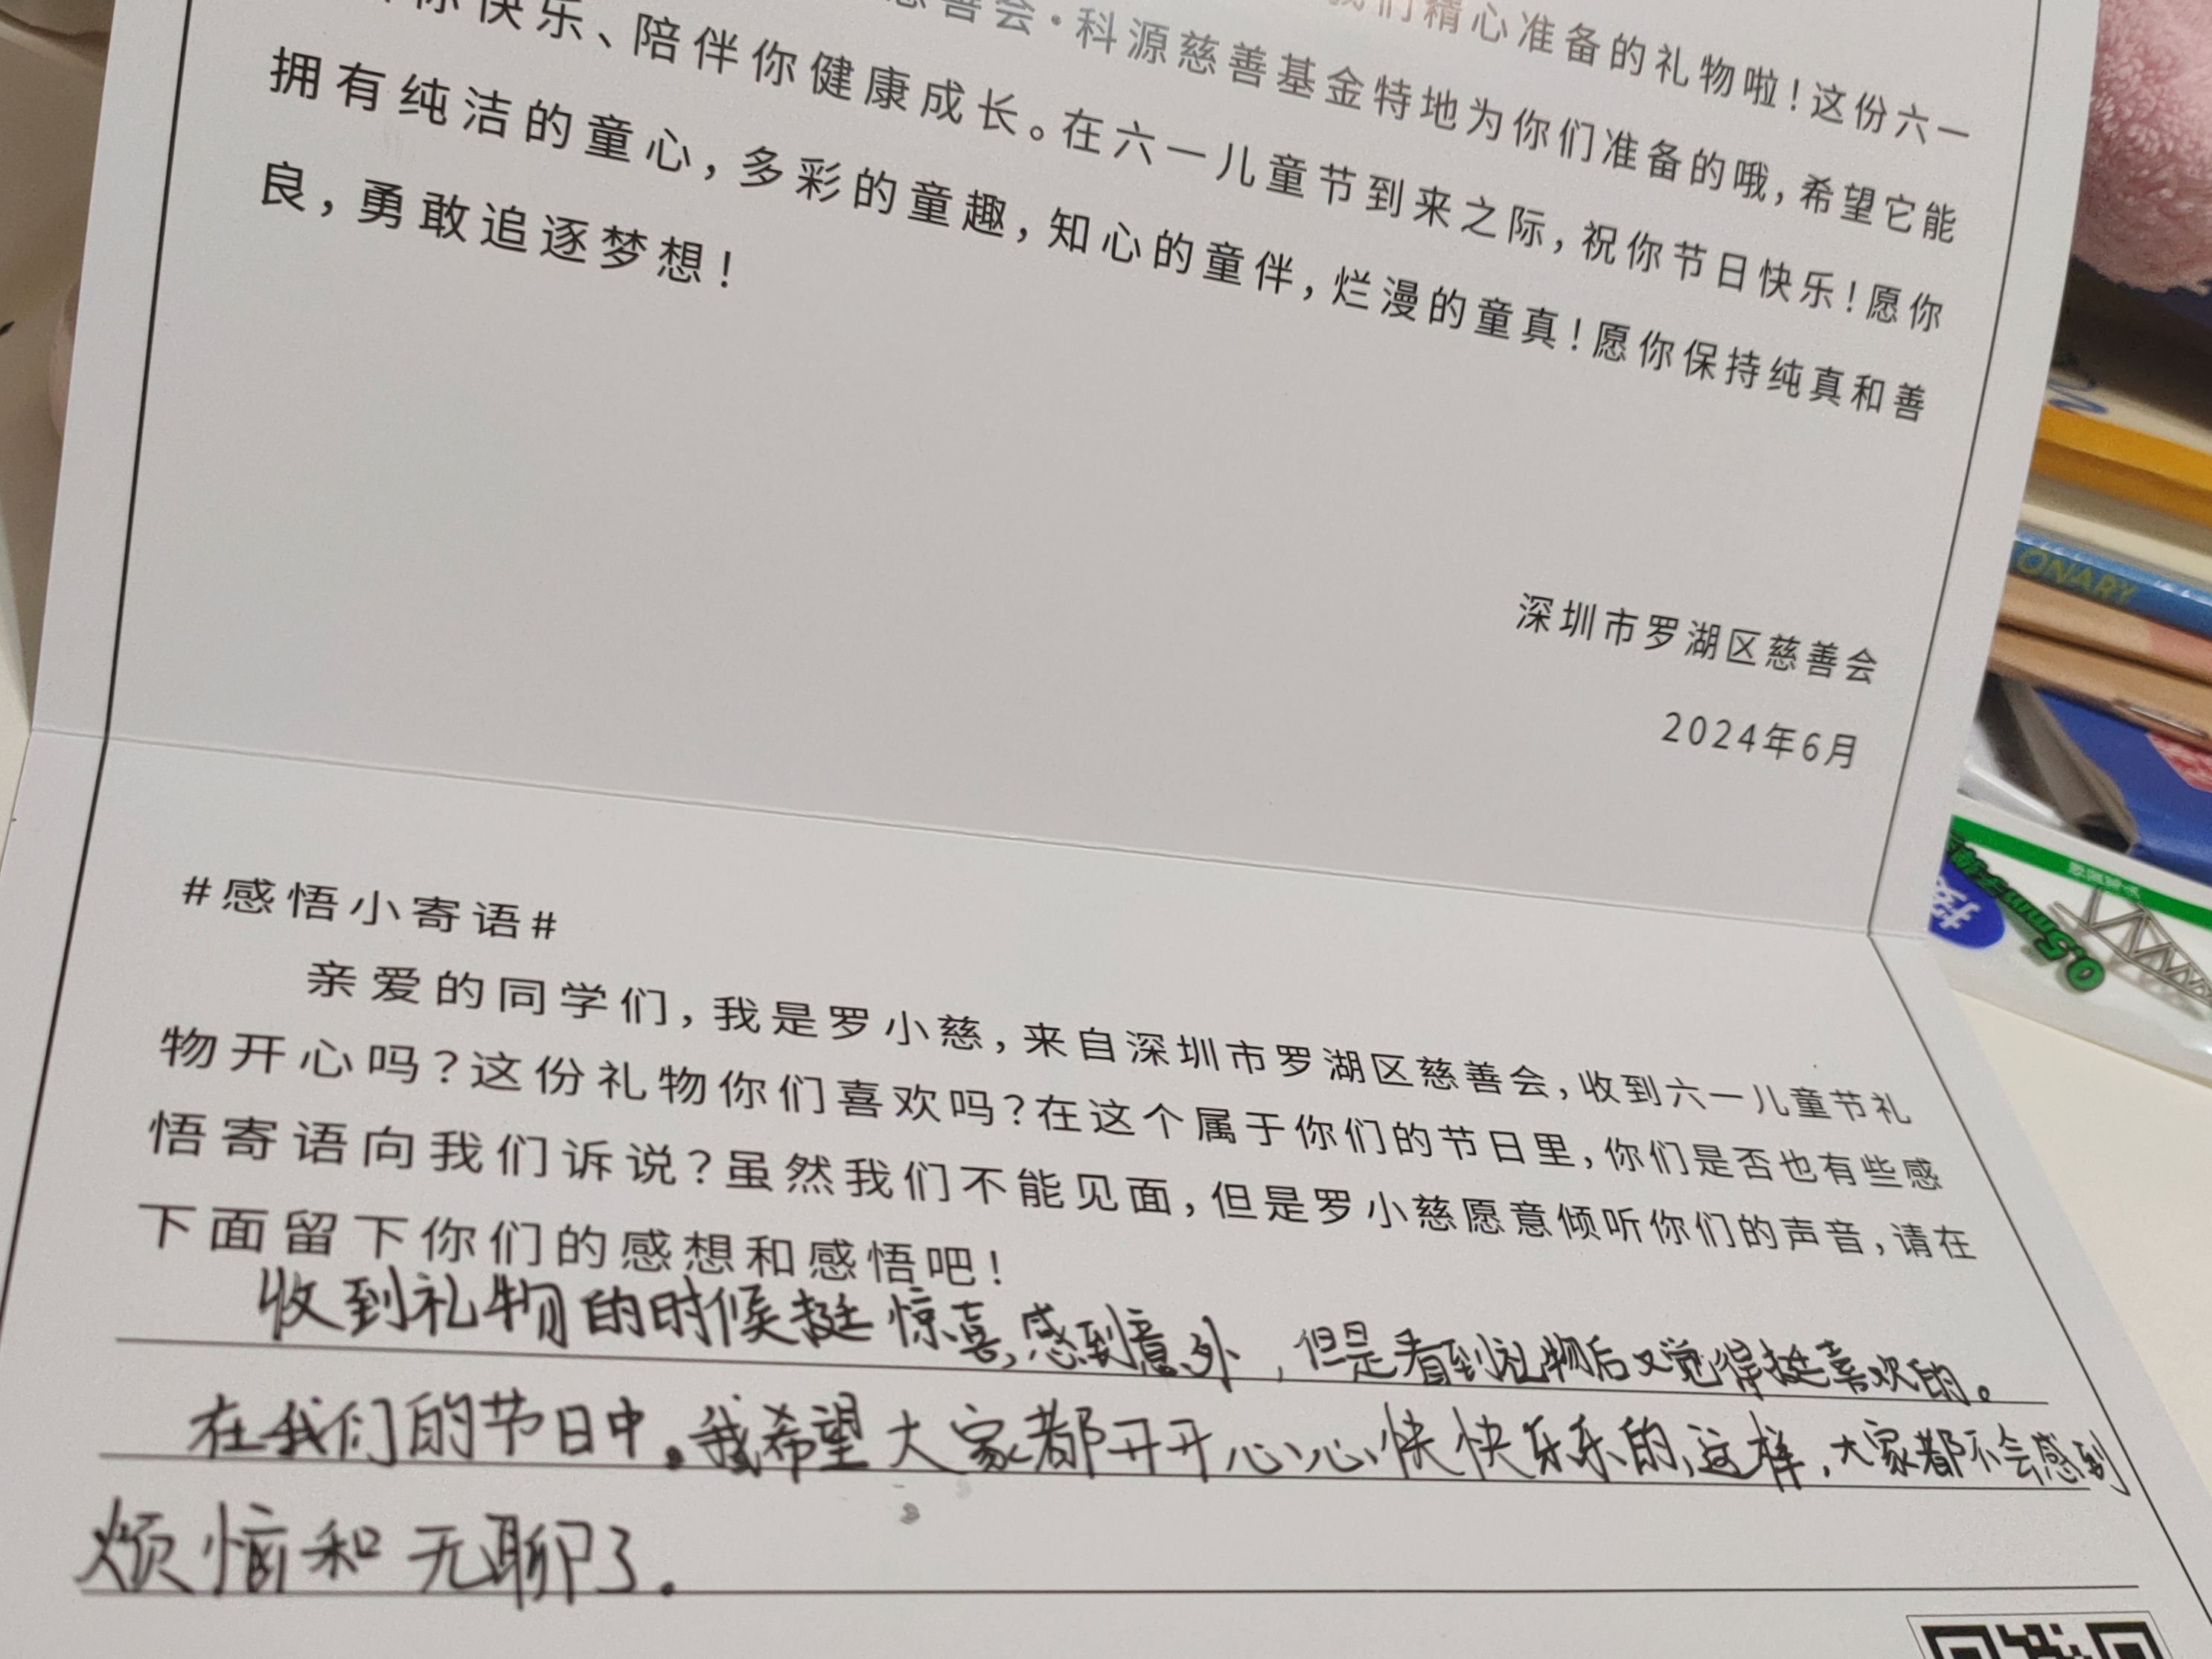 我们精心准备的礼物啦！这份六一
慈善会·科源慈善基金特地为你们准备的哦，希望它能
你快乐、陪伴你健康成长。在六一儿童节到来之际，祝你节日快乐！愿你
拥有纯洁的童心，多彩的童趣，知心的童伴，烂漫的童真！愿你保持纯真和善
良，勇敢追逐梦想！
深圳市罗湖区慈善会
2024年6月
#感悟小寄语#
亲爱的同学们，我是罗小慈，来自深圳市罗湖区慈善会，收到六一儿童节礼
物开心吗？这份礼物你们喜欢吗？在这个属于你们的节日里，你们是否也有些感
悟寄语向我们诉说？虽然我们不能见面，但是罗小慈愿意倾听你们的声音，请在
下面留下你们的感想和感悟吧！
收到礼物的时候挺惊喜，感到意外，但是看到礼物后又觉得挺喜欢的。
在我们的节日中。我希望大家都开开心心快快乐乐的，这样，大家都不会感到
烦恼和无聊了.
ONARY
0.5mm